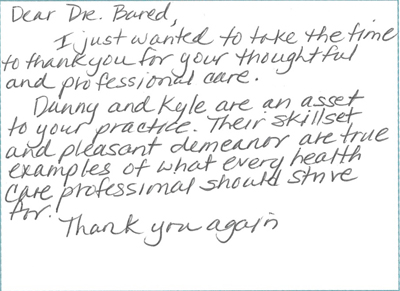 Dear Dr. Bared,
I just wanted to take the time
to thank you for your thoughtful
and professional care.
Danny and Kyle are an asset
to your practice. Their skillset
and pleasant demeanor are true
examples of what every health
care professional should strive
for.
Thank you again